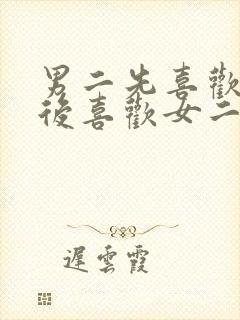 男二先喜歡
後喜歡女二
遲雲霞